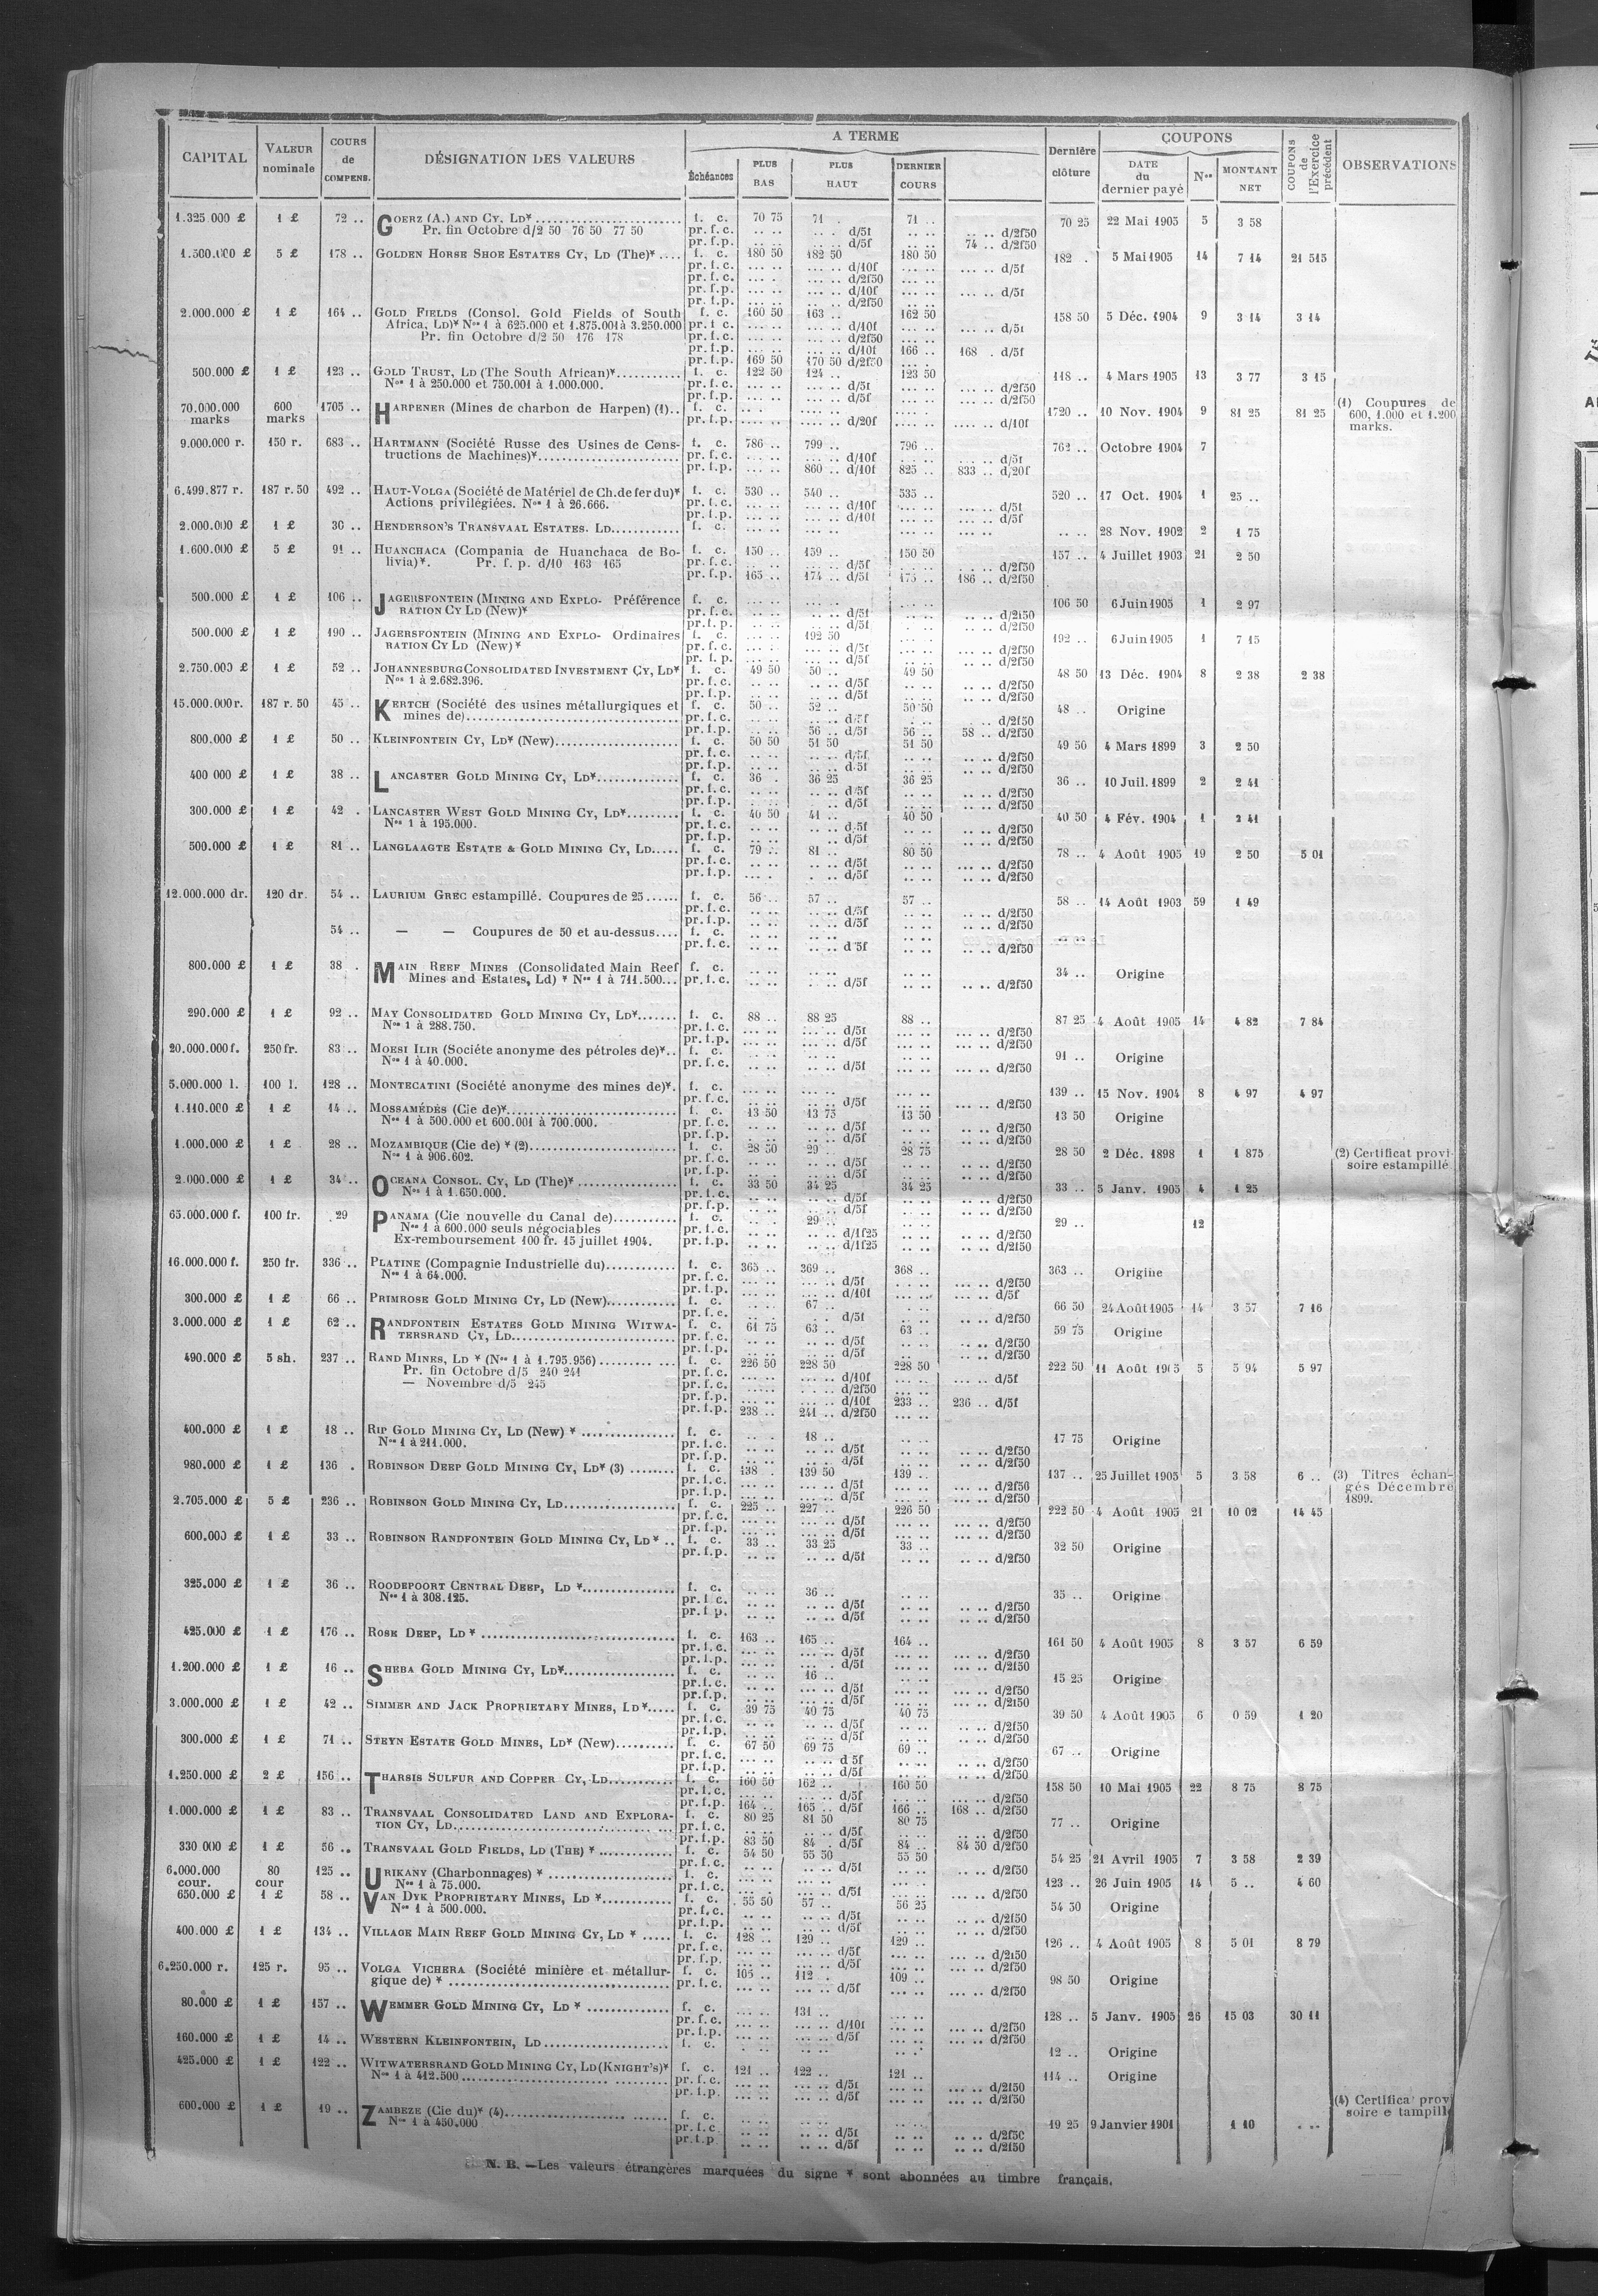 CAPITAL VALEUR nominale COURS de COMPENS. DÉSIGNATION DES VALEURS A TERME Échéances PLUS BAS PLUS HAUT DERNIER COURS Dernière clôture COUPONS DATE du dernier payé Nos MONTANT NET COUPONS de l'Exercice précédent OBSERVATIONS
1.325 000 £ 1 £ 72 .. GOERZ (A.) AND CY, LD* f. c. 70 75 71 . 71 .. 70 25 22 Mai 1905 5 3 58
Pr. fin Octobre d/2 50 76 50 77 50 pr. f. c. .. .. .. . d/5f .. .. .. .. d/2f50
pr. f.p. .. .. .. .. d/5f .. .. 74 .. d/2f50
1.500.000 £ 5 £ 178 .. GOLDEN HORSE SHOE ESTATES CY, LD (The)* .... f. c. 180 50 182 50 180 50 182 . 5 Mai 1905 14 7 14 21 515
pr. f. c. ... .. ... .. d/10f ... .. ... .. d/5f
pr. f.c. ... .. ... .. d/2f50 ... ..
pr. f.p. ... .. ... .. d/10f ... .. ... .. d/5f
pr. f.p. ... .. ... .. d/2f50 ... ..
2.000.000 £ 1 £ 164 .. GOLD FIELDS (Consol. Gold Fields of South f. c. 160 50 163 .. 162 50 158 50 5 Déc. 1904 9 3 14 3 14
Africa, LD)* Nos 1 à 625.000 et 1.875.001 à 3.250.000 pr. f. c. ... .. ... .. d/10f ... .. ... .. d/5f
Pr. fin Octobre d/2 50 176 178 pr. f. c. ... .. ... .. d/2f50 ... ..
pr. f.p. ... .. ... .. d/10f 166 .. 168 . d/5f
pr. f.p. 169 50 170 50 d/2f50 ... .
500.000 £ 1 £ 123 .. GOLD TRUST, LD (The South African)* f. c. 122 50 124 .. 123 50 118 .. 4 Mars 1905 13 3 77 3 15
Nos 1 à 250.000 et 750.001 à 1.000.000. pr. f. c. ... .. ... .. d/5f ... .. ... .. d/2f50
pr. f.p. ... .. ... .. d/5f ... .. ... .. d/2f50
70.000.000 marks 600 marks 1705 .. HARPENER (Mines de charbon de Harpen) (1).. f. c. 1720 .. 10 Nov. 1904 9 81 25 81 25 (1) Coupures de 600, 1.000 et 1.200 marks.
pr. f.p. .... .. .... .. d/20f .... .. .... .. d/10f
9.000.000 r. 150 r. 683 .. HARTMANN (Société Russe des Usines de Cons- f. c. 786 .. 799 .. 796 .. 762 .. Octobre 1904 7
tructions de Machines)* pr. f. c. ... .. ... .. d/10f ... .. ... .. d/5f
pr. f.p. ... .. 860 .. d/10f 825 .. 833 .. d/20f
6.499.877 r. 187 r. 50 492 .. HAUT-VOLGA (Société de Matériel de Ch. de fer du)* f. c. 530 .. 540 .. 535 .. 520 .. 17 Oct. 1904 1 25 ..
Actions privilégiées. Nos 1 à 26.666. pr. f. c. ... .. ... .. d/10f ... .. ... .. d/5f
pr. f.p. ... .. ... .. d/10f ... .. ... .. d/5f
2.000.000 £ 1 £ 30 .. HENDERSON'S TRANSVAAL ESTATES. LD f. c. ... .. ... .. ... .. .. .. 28 Nov. 1902 2 1 75
1.600.000 £ 5 £ 91 .. HUANCHACA (Compania de Huanchaca de Bo- f. c. 150 .. 159 .. 150 50 157 .. 4 Juillet 1903 21 2 50
livia)*. Pr. f. p. d/10 163 165 pr. f. c. ... .. ... .. d/5f ... .. ... .. d/2f50
pr. f.p. 165 .. 174 .. d/5f 175 .. 186 .. d/2f50
500.000 £ 1 £ 106 .. JAGERSFONTEIN (MINING AND EXPLO- Préférence f. c. ... .. ... .. ... .. 106 50 6 Juin 1905 1 2 97
RATION CY LD (New)* pr. f. c. ... .. ... .. d/5f ... .. ... .. d/2f50
pr. f.p. ... .. ... .. d/5f ... .. ... .. d/2f50
500.000 £ 1 £ 190 .. JAGERSFONTEIN (MINING AND EXPLO- Ordinaires f. c. ... .. 192 50 ... .. 192 .. 6 Juin 1905 1 7 15
RATION CY LD (New)* pr. f. c. ... .. ... .. d/5f ... .. ... .. d/2f50
pr. f. p. ... .. ... .. d/5f ... .. ... .. d/2f50
2.750.000 £ 1 £ 52 .. JOHANNESBURG CONSOLIDATED INVESTMENT CY, LD* f. c. 49 50 50 .. 49 50 48 50 13 Déc. 1904 8 2 38 2 38
Nos 1 à 2.682.396. pr. f. c. .. .. .. .. d/5f .. .. .. .. d/2f50
pr. f.p. .. .. .. .. d/5f .. .. .. .. d/2f50
15.000.000 r. 187 r. 50 45 .. KERTCH (Société des usines métallurgiques et f. c. 50 .. 52 .. 50 50 48 .. Origine
mines de) pr. f. c. .. .. .. .. d/5f .. .. .. .. d/2f50
pr. f.p. .. .. 56 .. d/5f 56 .. 58 .. d/2f50
800.000 £ 1 £ 50 .. KLEINFONTEIN CY, LD* (New) f. c. 50 50 51 50 51 50 49 50 4 Mars 1899 3 2 50
pr. f. c. .. .. .. .. d/5f .. .. .. .. d/2f50
pr. f.p. .. .. .. .. d/5f .. .. .. .. d/2f50
400 000 £ 1 £ 38 .. LANCASTER GOLD MINING CY, LD* f. c. 36 . 36 25 36 25 36 .. 10 Juil. 1899 2 2 41
pr. f. c. .. .. .. .. d/5f .. .. .. .. d/2f50
pr. f.p. .. .. .. .. d/5f .. .. .. .. d/2f50
300.000 £ 1 £ 42 . LANCASTER WEST GOLD MINING CY, LD* f. c. 40 50 41 .. 40 50 40 50 4 Fév. 1904 1 2 41
Nos 1 à 195.000. pr. f. c. .. .. .. .. d/5f .. .. .. .. d/2f50
pr. f.p. .. .. .. .. d/5f .. .. .. .. d/2f50
500.000 £ 1 £ 81 .. LANGLAAGTE ESTATE & GOLD MINING CY, LD f. c. 79 .. 81 .. 80 50 78 .. 4 Août 1905 19 2 50 5 01
pr. f. c. .. .. .. .. d/5f .. .. .. .. d/2f50
pr. f.p. .. .. .. .. d/5f .. .. .. .. d/2f50
12.000.000 dr. 120 dr. 54 .. LAURIUM GREC estampillé. Coupures de 25 f. c. 56 .. 57 .. 57 .. 58 .. 14 Août 1903 59 1 49
pr. f. c. .. .. .. .. d/5f .. .. .. .. d/2f50
pr. f.p. .. .. .. .. d/5f .. .. .. .. d/2f50
54 .. — — Coupures de 50 et au-dessus f. c. .. .. .. .. .. .. .. ..
pr. f. c. .. .. .. .. d/5f .. .. .. .. d/2f50
800.000 £ 1 £ 38 . MAIN REEF MINES (Consolidated Main Reef f. c. .. .. .. .. .. .. 34 .. Origine
Mines and Estates, Ld) * Nos 1 à 711.500 pr. f. c. .. .. .. .. d/5f .. .. .. .. d/2f50
290.000 £ 1 £ 92 .. MAY CONSOLIDATED GOLD MINING CY, LD* f. c. 88 .. 88 25 88 .. 87 25 4 Août 1905 14 4 82 7 84
Nos 1 à 288.750. pr. f. c. ... .. ... .. d/5f ... .. ... .. d/2f50
pr. f.p. ... .. ... .. d/5f ... .. ... .. d/2f50
20.000.000 f. 250 fr. 83 .. MOESI ILIR (Sociéte anonyme des pétroles de)*.. f. c. .. .. .. .. .. .. 91 .. Origine
Nos 1 à 40.000. pr. f. c. .. .. .. .. d/5f .. .. .. .. d/2f50
5.000.000 l. 100 l. 128 .. MONTECATINI (Société anonyme des mines de)*. f. c. ... .. ... .. ... .. 139 .. 15 Nov. 1904 8 4 97 4 97
pr. f. c. ... .. ... .. d/5f ... .. ... .. d/2f50
1.110.000 £ 1 £ 14 .. MOSSAMÉDÈS (Cie de)* f. c. 13 50 13 75 13 50 13 50 Origine
Nos 1 à 500.000 et 600.001 à 700.000. pr. f. c. .. .. .. .. d/5f .. .. .. .. d/2f50
pr. f.p. .. .. .. .. d/5f .. .. .. .. d/2f50
1.000.000 £ 1 £ 28 .. MOZAMBIQUE (Cie de) * (2) f. c. 28 50 29 .. 28 75 28 50 2 Déc. 1898 1 1 875 (2) Certificat provi- soire estampillé.
Nos 1 à 906.602. pr. f. c. .. .. .. .. d/5f .. .. .. .. d/2f50
pr. f.p. .. .. .. .. d/5f .. .. .. .. d/2f50
2.000.000 £ 1 £ 34 .. OCEANA CONSOL. CY, LD (The)* f. c. 33 50 34 25 34 25 33 .. 5 Janv. 1905 4 1 25
Nos 1 à 1.650.000. pr. f. c. .. .. .. .. d/5f .. .. .. .. d/2f50
pr. f.p. .. .. .. .. d/5f .. .. .. .. d/2f50
65.000.000 f. 100 fr. 29 PANAMA (Cie nouvelle du Canal de) f. c. .. . 29 .. .. .. 29 .. 12
Nos 1 à 600.000 seuls négociables pr. f. c. .. .. .. .. d/1f25 .. .. .. .. d/2f50
Ex-remboursement 100 fr. 15 juillet 1904. pr. f.p. .. .. .. .. d/1f25 .. .. .. .. d/2f50
16.000.000 f. 250 fr. 336 .. PLATINE (Compagnie Industrielle du) f. c. 365 .. 369 .. 368 .. 363 .. Origine
Nos 1 à 64.000. pr. f. c. ... .. ... .. d/5f ... .. ... .. d/2f50
pr. f.p. ... .. ... .. d/10f ... .. ... .. d/5f
300.000 £ 1 £ 66 .. PRIMROSE GOLD MINING CY, LD (New) f. c. .. .. 67 .. .. .. 66 50 24 Août 1905 14 3 57 7 16
pr. f. c. .. .. .. . d/5f .. .. .. .. d/2f50
3.000.000 £ 1 £ 62 .. RANDFONTEIN ESTATES GOLD MINING WITWA- f. c. 61 75 63 .. 63 .. 59 75 Origine
TERSRAND CY, LD pr. f. c. .. .. .. .. d/5f .. .. .. .. d/2f50
pr. f.p. .. .. .. .. d/5f .. .. .. .. d/2f50
490.000 £ 5 sh. 237 .. RAND MINES, LD * (Nos 1 à 1.795.956) f. c. 226 50 228 50 228 50 222 50 11 Août 1905 5 5 94 5 97
Pr. fin Octobre d/5 240 241 pr. f. c. ... .. ... .. d/10f ... .. ... .. d/5f
— Novembre d/5 245 pr. f. c. ... .. ... .. d/2f50 ... ..
pr. f.p. ... .. ... .. d/10f 233 .. 236 .. d/5f
pr. f.p. 238 .. 241 .. d/2f50 ... ..
400.000 £ 1 £ 18 .. RIP GOLD MINING CY, LD (New) * f. c. .. . 18 .. .. .. 17 75 Origine
Nos 1 à 211.000. pr. f. c. .. .. .. .. d/5f .. .. .. .. d/2f50
pr. f.p. .. .. .. .. d/5f .. .. .. .. d/2f50
980.000 £ 1 £ 136 . ROBINSON DEEP GOLD MINING CY, LD* (3) f. c. 138 . 139 50 139 .. 137 .. 25 Juillet 1905 5 3 58 6 .. (3) Titres échan- gés Décembre 1899.
pr. f. c. ... .. ... .. d/5f ... .. ... .. d/2f56
pr. f.p. ... .. ... .. d/5f ... .. ... .. d/2f50
2.705.000 £ 5 £ 236 .. ROBINSON GOLD MINING CY, LD f. c. 225 .. 227 .. 226 50 222 50 4 Août 1905 21 10 02 14 45
pr. f. c. ... .. ... .. d/5f ... .. ... .. d/2f50
pr. f.p. ... .. ... .. d/5f ... .. ... .. d/2f50
600.000 £ 1 £ 33 .. ROBINSON RANDFONTEIN GOLD MINING CY, LD * .. f. c. 33 .. 33 25 33 .. 32 50 Origine
pr. f.p. .. .. .. .. d/5f .. .. .. .. d/2f50
325.000 £ 1 £ 36 .. ROODEPOORT CENTRAL DEEP, LD * f. c. .. .. 36 .. .. .. 35 .. Origine
Nos 1 à 308.125. pr. f. c. .. .. .. .. d/5f .. .. .. .. d/2f50
pr. f. p. .. .. .. .. d/5f .. .. .. .. d/2f50
425.000 £ 1 £ 176 .. ROSE DEEP, LD * f. c. 163 .. 165 .. 164 .. 161 50 4 Août 1905 8 3 57 6 59
pr. f. c. ... .. ... .. d/5f ... .. ... .. d/2f50
pr. f.p. ... .. ... . d/5f ... .. ... .. d/2f50
1.200.000 £ 1 £ 16 .. SHEBA GOLD MINING CY, LD* f. c. .. .. 16 .. .. .. 15 25 Origine
pr. f. c. .. .. .. .. d/5f .. .. .. .. d/2f50
pr. f.p. .. .. .. .. d/5f .. .. .. .. d/2f50
3.000.000 £ 1 £ 42 .. SIMMER AND JACK PROPRIETARY MINES, LD* f. c. 39 75 40 75 40 75 39 50 4 Août 1905 6 0 59 1 20
pr. f. c. .. .. .. .. d/5f .. .. .. .. d/2f50
pr. f.p. .. .. .. .. d/5f .. .. .. .. d/2f50
300.000 £ 1 £ 71 .. STEYN ESTATE GOLD MINES, LD* (New) f. c. 67 50 69 75 69 .. 67 .. Origine
pr. f. c. .. .. .. .. d 5f .. .. .. .. d/2f50
pr. f.p. .. .. .. .. d/5f .. .. .. .. d/2f50
1.250.000 £ 2 £ 156 .. THARSIS SULFUR AND COPPER CY, LD f. c. 160 50 162 .. 160 50 158 50 10 Mai 1905 22 8 75 8 75
pr. f. c. ... .. ... .. d/5f ... .. ... .. d/2f50
pr. f.p. 164 .. 165 .. d/5f 166 .. 168 .. d/2f50
1.000.000 £ 1 £ 83 .. TRANSVAAL CONSOLIDATED LAND AND EXPLORA- f. c. 80 25 81 50 80 75 77 .. Origine
TION CY, LD pr. f. c. .. .. .. .. d/5f .. .. .. .. d/2f50
pr. f.p. 83 50 84 . d/5f 84 .. 84 50 d/2f50
330 000 £ 1 £ 56 .. TRANSVAAL GOLD FIELDS, LD (THE) * f. c. 54 50 55 50 55 50 54 25 21 Avril 1905 7 3 58 2 39
pr. f. c. .. .. .. .. d/5f .. .. .. .. d/2f50
6.000.000 cour. 80 cour 125 .. URIKANY (Charbonnages) * f. c. ... .. ... .. ... .. 123 .. 26 Juin 1905 14 5 .. 4 60
Nos 1 à 75.000. pr. f. c. ... .. ... .. d/5f ... .. ... .. d/2f50
650.000 £ 1 £ 58 .. VAN DYK PROPRIETARY MINES, LD * f. c. 55 50 57 .. 56 25 54 50 Origine
Nos 1 à 500.000. pr. f. c. .. .. .. .. d/5f .. .. .. .. d/2f50
pr. f.p. .. .. .. .. d/5f .. .. .. .. d/2f50
400.000 £ 1 £ 134 .. VILLAGE MAIN REEF GOLD MINING CY, LD * f. c. 128 .. 129 .. 129 .. 126 .. 4 Août 1905 8 5 01 8 79
pr. f. c. ... .. ... .. d/5f ... .. ... .. d/2f50
pr. f.p. ... .. ... .. d/5f ... .. ... .. d/2f50
6.250.000 r. 125 r. 95 .. VOLGA VICHERA (Société minière et métallur- f. c. 105 .. 112 . 109 .. 98 50 Origine
gique de) * pr. f. c. ... .. ... .. d/5f ... .. ... .. d/2f50
80.000 £ 1 £ 157 .. WEMMER GOLD MINING CY, LD * f. c. ... .. 131 .. ... .. 128 .. 5 Janv. 1905 26 15 03 30 11
pr. f. c. ... .. ... .. d/10f ... .. ... .. d/2f50
pr. f.p. ... .. ... .. d/5f ... .. ... .. d/2f50
160.000 £ 1 £ 14 .. WESTERN KLEINFONTEIN, LD f. c. .. .. .. .. .. .. 12 .. Origine
425.000 £ 1 £ 122 .. WITWATERSRAND GOLD MINING CY, LD (KNIGHT'S)* f. c. 121 .. 122 .. 121 .. 114 .. Origine
Nos 1 à 412.500 pr. f. c. ... .. ... .. d/5f ... .. ... .. d/2f50
pr. f.p. ... .. ... .. d/5f ... .. ... .. d/2f50
600.000 £ 1 £ 19 .. ZAMBEZE (Cie du)* (4) f. c. .. .. .. .. .. .. 19 25 9 Janvier 1901 1 10 .. .. (4) Certifica' provi soire e tampillé
Nos 1 à 450.000 pr. f. c .. .. .. .. d/5f .. .. .. .. d/2f50
pr. f. p .. .. .. .. d/5f .. .. .. .. d/2f50
N. B. —Les valeurs étrangères marquées du signe * sont abonnées au timbre français.